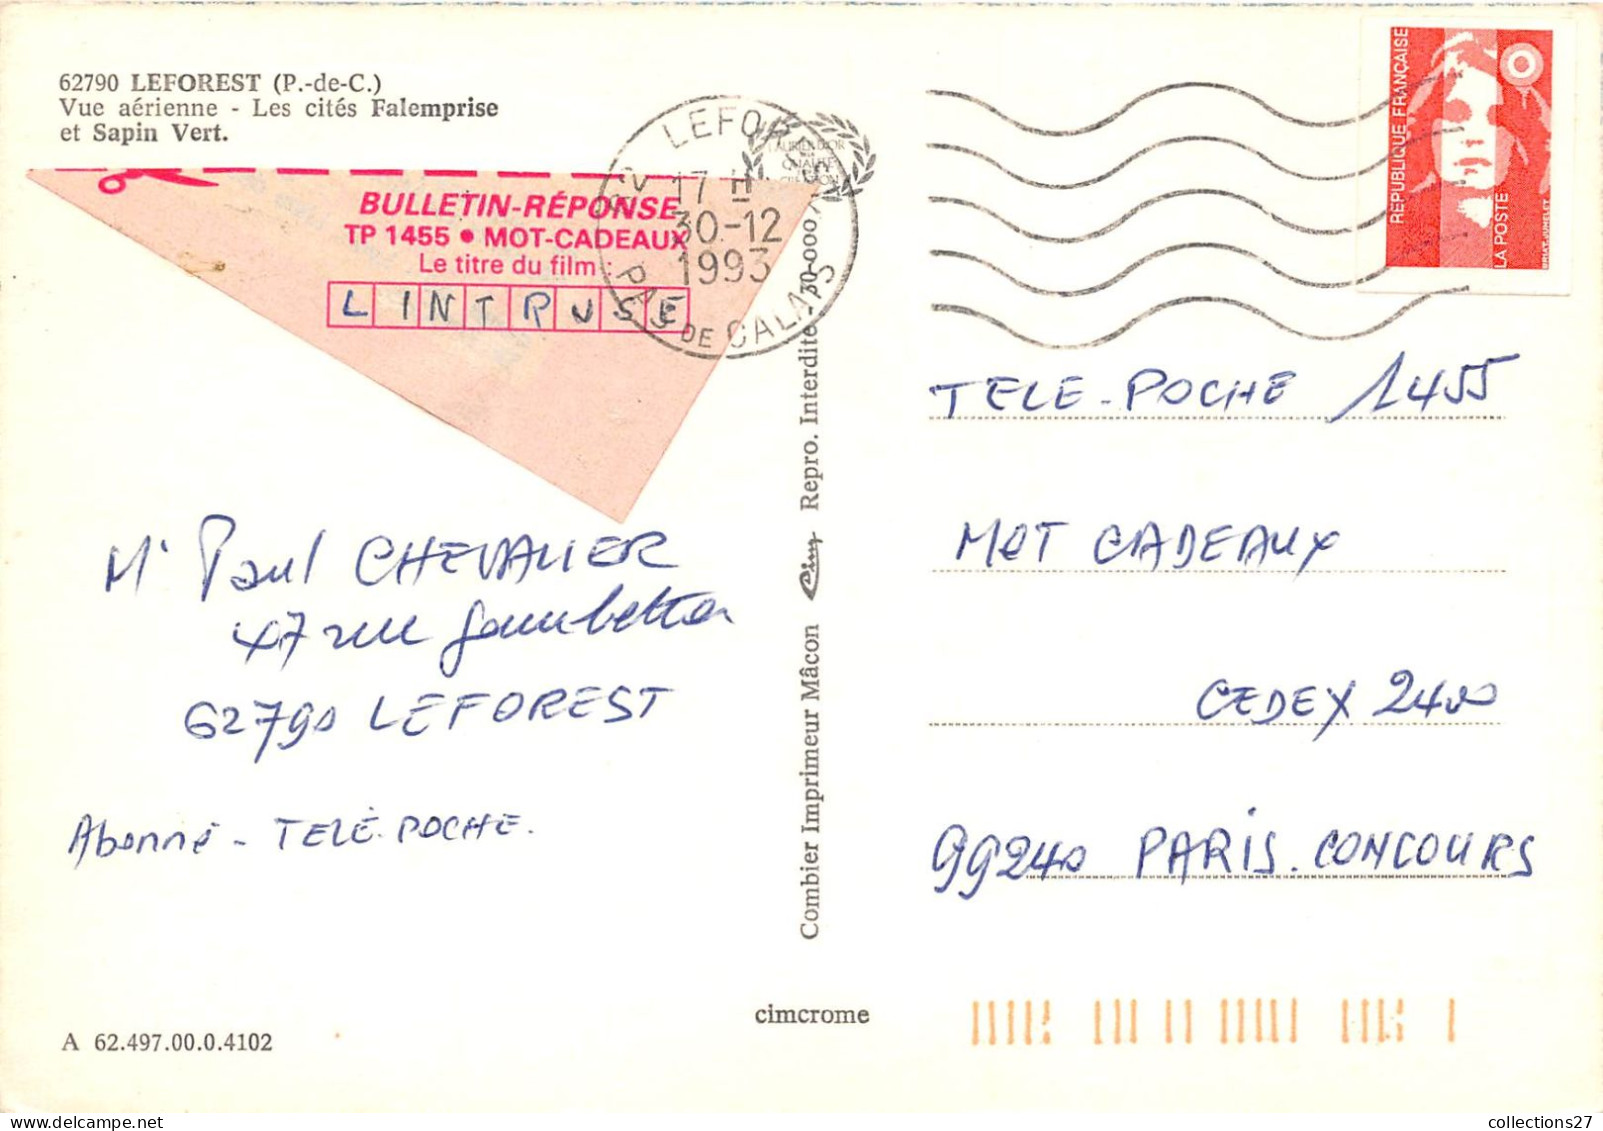 62790 LEFOREST (P.-de-C.)
Vue aérienne - Les cités Falemprise
et Sapin Vert.
BULLETIN-RÉPONSE
TP 1455 • MOT-CADEAUX
Le titre du film :
LINTRUSE
62 LEFOREST
17 H
30-12
1993
PAS DE CALAIS
LAURIER D'OR
QUALITE
REPUBLIQUE FRANÇAISE
LA POSTE
TELE-POCHE 1455
MOT CADEAUX
CEDEX 2400
99240 PARIS. CONCOURS
Mr Paul CHEVALIER
47 rue Gambetta
62790 LEFOREST
Abonné - TELÉ.POCHE.
Combier Imprimeur Mâcon Cim Repro. Interdite
cimcrome
A 62.497.00.0.4102
collections27